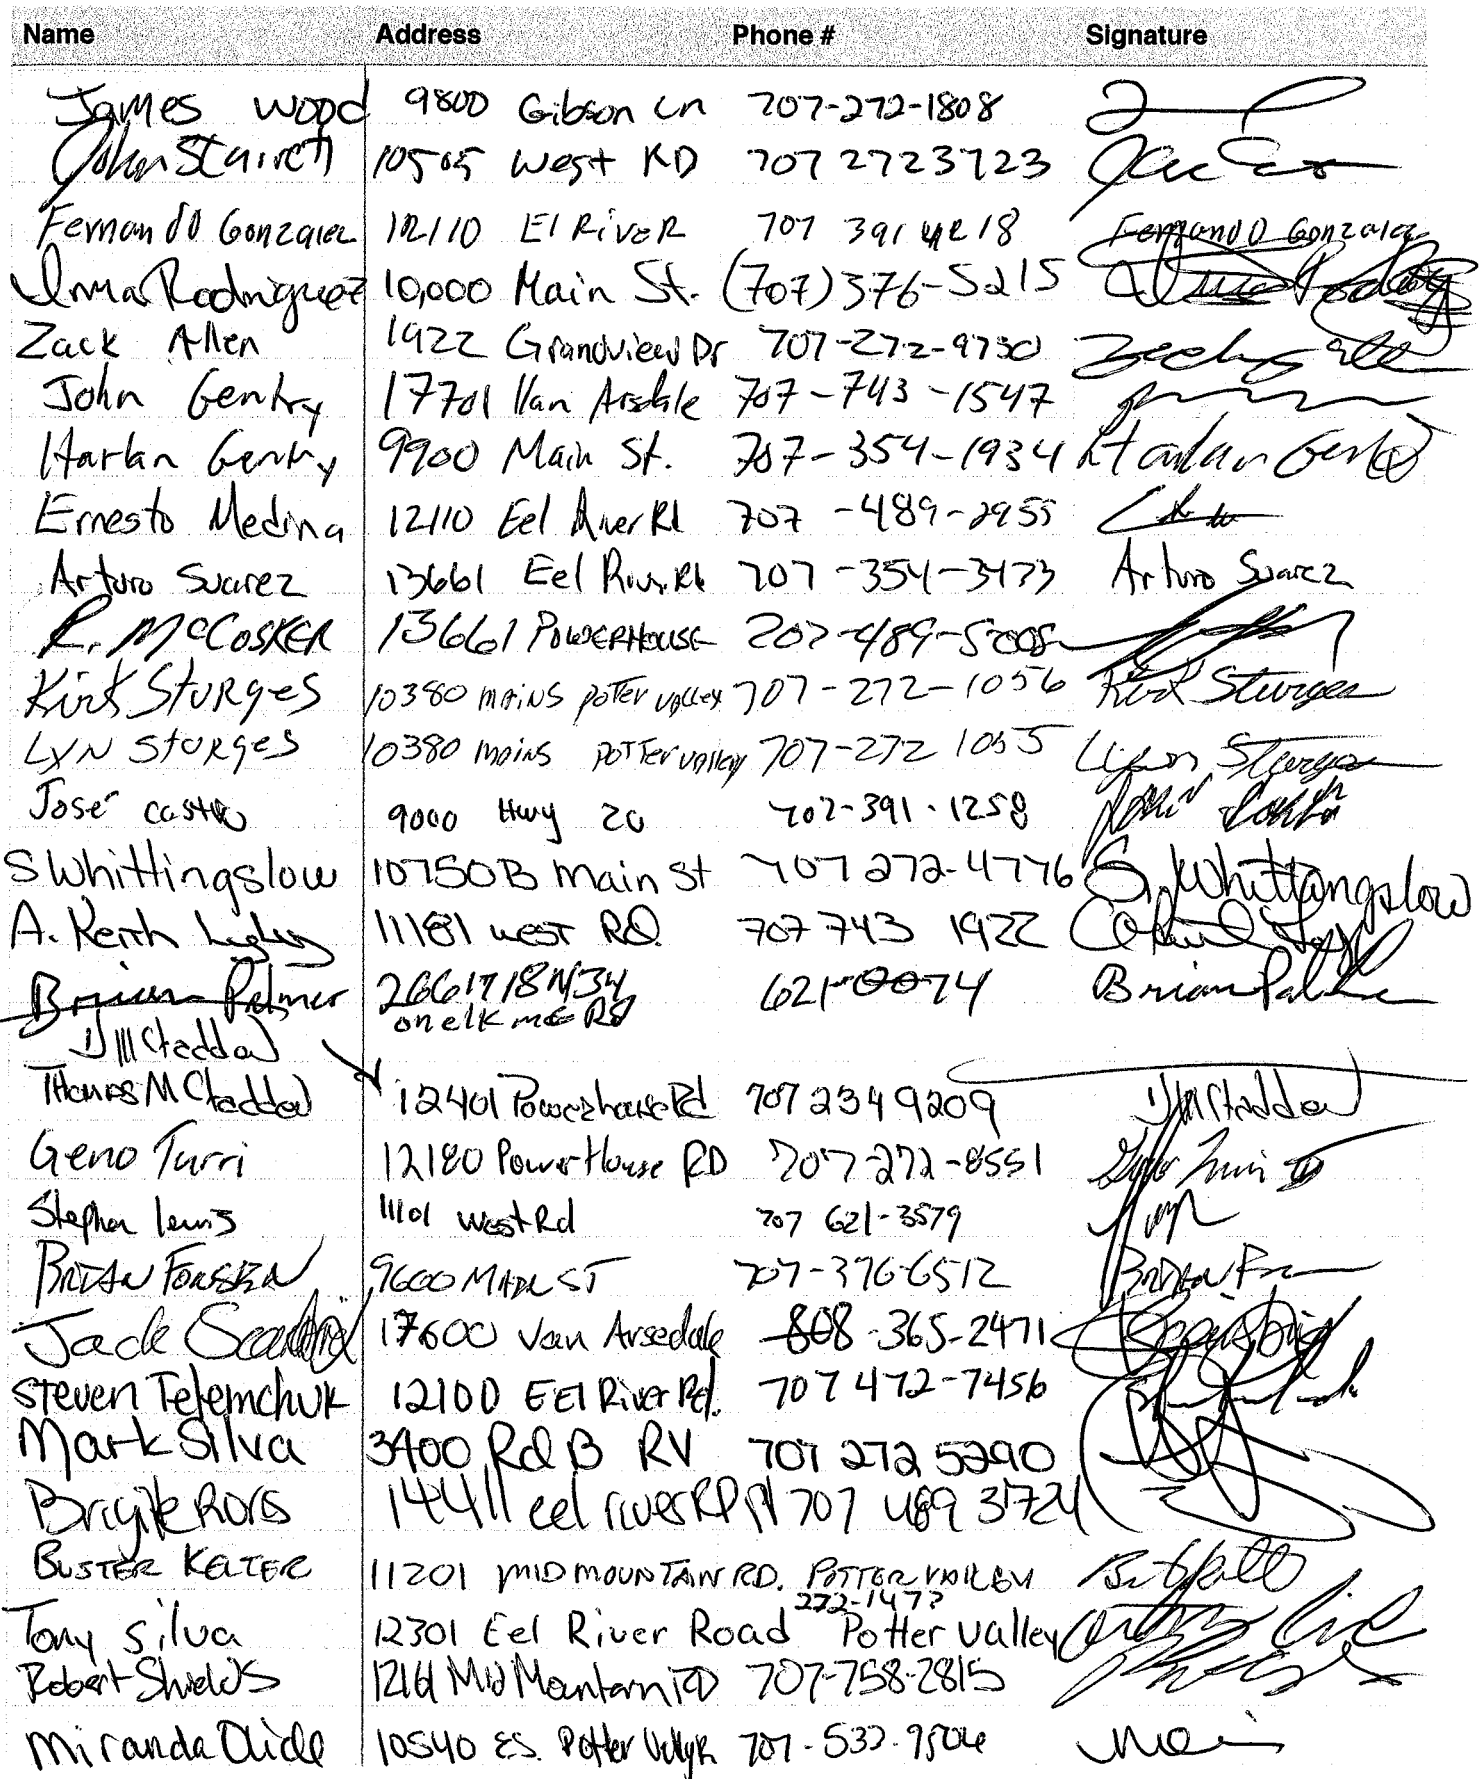 Name Address Phone # Signature
James Wood 9800 Gibson Ln 707-272-1808
John 10505 West RD 707 272 3723
Fernando Gonzalez 12110 El RiveR 707 391 4218 Fernando Gonzalez
Irma Rodriguez 10,000 Main St. (707) 376-5215
Zack Allen 1922 Grandview Dr 707-272-9730
John Gentry 17701 Van Arsdale 707-743-1547
Harlan Gentry 9900 Main St. 707-354-1934 Harlan Gentry
Ernesto Medina 12110 Eel River Rd 707-489-2955
Arturo Suarez 13661 Eel River Rd 707-354-3473 Arturo Suarez
R. McCOSKER 13661 POWERHOUSE 707-489-5008
Kirk Sturges 10380 mains potter valley 707-272-1056 Kirk Sturges
LYN Sturges 10380 mains POTTER valley 707-272 1055 Lynn Sturges
José Castro 9000 Hwy 20 707-391-1258
S Whittingslow 10750B Main St 707 272-4776 S. Whittingslow
A. Keith 11181 West RD. 707 743 1922
Brian Palmer 26617 18N34 621-0074 Brian Palmer
on elk mt Rd
Thomas McFadden 12401 Powerhouse Rd 707 234 9209
Geno Turri 12180 PowerHouse RD 707-272-8551
Stephen Lewis 11101 West Rd 707 621-3579
BRIAN 9600 MAIN ST 707-376-6512 BRIAN
Jack 17600 Van Arsedale 808-365-2471
Steven Telemchuk 12100 EEl River Rd. 707 472-7456
Mark Silva 3400 Rd B RV 707 272 5290
14411 eel river RD PV 707 489 3724
BUSTER KELTER 11201 MID MOUNTAIN RD. POTTER VALLEY
272-147?
Tony Silva 12301 Eel River Road Potter Valley
Robert Shields 12161 Mid Mountain RD 707-758-2815
Miranda 10540 E.S. Potter Vally R 707-533-9504